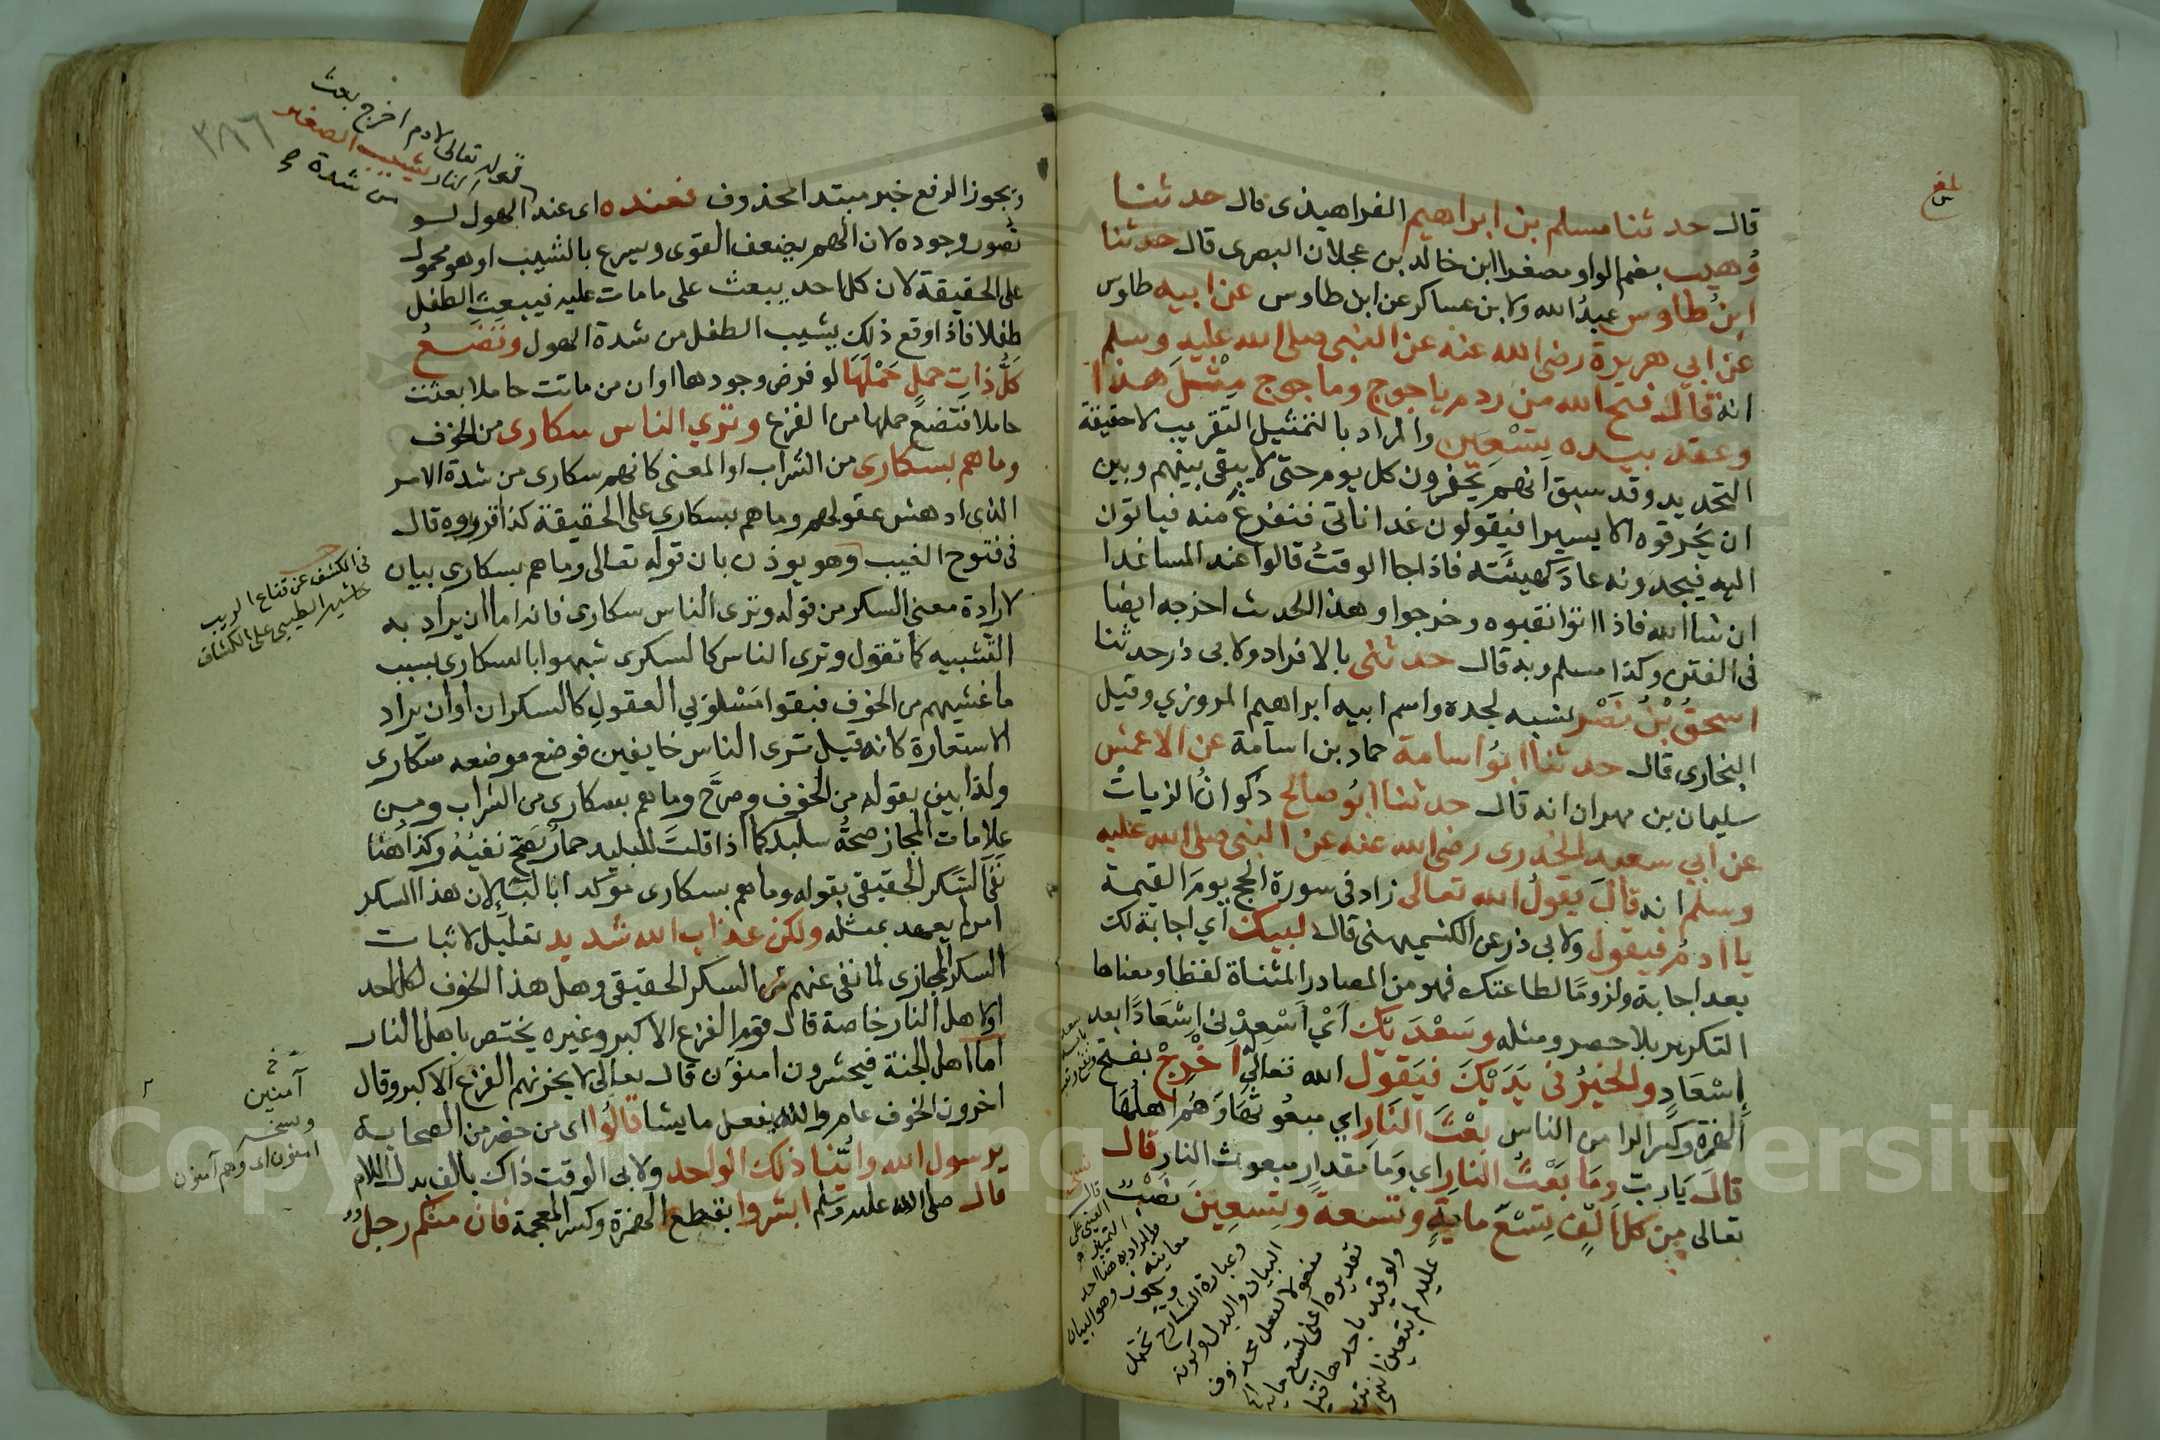 قال حدثنا مسلم بن ابراهيم الفراهيذى قال حدثنا
وُهيب بضم الواو مصغرا ابن خالد بن عجلان البصرى قال حدثنا
ابنُ طاوس عبدُ الله ولابن عساكر عن ابن طاوس عن ابيه طاوس
عن ابى هريرة رضى الله عنه عن النبى صلى الله عليه وسلم
انه قال فتح الله من ردم ياجوج وماجوج مِثْلَ هذا
وعقد بيده تِسْعين والمراد بالتمثيل التقريب لا حقيقة
التحديد وقد سبق انهم يحفرون كل يوم حتى لا يبقى بينهم وبين
ان يخرقوه الا يسيرا فيقولون غدا ناتى فنفرغ منه فياتون
اليه فيجدونه عاد كهيئته فاذا جا الوقتُ قالوا عند المسا غدا
ان شا الله فاذا اتوا نقبوه وخرجوا وهذا الحديث اخرجه ايضا
فى الفتن وكذا مسلم وبه قال حدثنى بالافراد ولابى ذر حدثنا
اسحقُ بْنُ نَصْر نسبه لجده واسم ابيه ابراهيم المروزي وقيل
البخارى قال حدثنا ابُو اسامة حماد بن اسامة عن الاعمش
سليمان بن مهران انه قال حدثنا ابُو صالح ذكوانُ الزيات
عن ابي سعيد الخدرى رضى الله عنه عن النبى صلى الله عليه
وسلم انه قال يقولُ الله تعالى زاد فى سورة الحج يومَ القيمة
يا ادمُ فيقول ولابى ذر عن الكشميهنى قال لبيك أي اجابة لك
بعد اجابة ولزومًا لطاعتك فهو من المصادر المثناة لفظا ومعناها
التكرير بلا حصر ومثله وسَعْدَيْك اَيْ اَسْعِدْنِى اِسْعَادًا بعد
إِسْعَادٍ والخيرُ فى يَدَيْكَ فَيَقول الله تعالى اَخْرِجْ بفتح
الهمزة وكسر الرا من الناس بَعْثَ النَارِ اي مبعوثهَا وَهُم اهلُهَا
قالَ يَاربّ وَمَا بَعْثُ النارِ اي وَمَا مقدارِ مبعوث النارِ قال
تعالى مِن كل اَلْفٍ تِسْعَ مايةٍ وتسعة وتِسْعِينَ نصْبٌ
ويجوز الرفع خبر مبتدا محذوف فعنده اى عند الهول لو
تُصور وجوده لان الهم يضعف القوى ويسرع بالشيب او هو محمول
على الحقيقة لان كل احد يبعث على ما مات عليه فيبعث الطفل
طفلا فاذا وقع ذلك يشيب الطفل من شدة الهول وتَضَعُ
كلُّ ذاتِ حملٍ حَمْلَهَا لو فرض وجودها او ان من ماتت حاملا بعثت
حاملا فتضع حملها من الفزع وترَي الناس سكارى من الخوف
وما هم بسكارى من الشراب او المعنى كانهم سكارى من شدة الامر
الذى ادهش عقولهم وما هم بسكاري على الحقيقة كذا قرروه قال
فى فتوح الغيب وهو يوذن بان قوله تعالى وما هم بسكارى بيان
لارادة معنى السكر من قوله وترى الناس سكارى فانه اما ان يراد به
التشبيه كما تقول وترى الناس كالسكرى شبهوا بالسكارى بسبب
ما غشيهم من الخوف فبقوا مَسْلوبي العقولِ كالسكران او ان يراد
الاستعارة كانه قيل ترى الناس خايفين فوضع موضعه سكارى
ولذا بين بقوله من الخوف وصرَّح وما هم بسكارى من الشراب ومن
علامات المجاز صحةُ سلبه كما اذا قلتَ للبليد حمارٌ يَصحّ نفيُهُ وكذا هنا
نَفَى السُّكر الحقيقى بقوله وما هم بسكارى موكدا بالبا لان هذا السكر
امر لم يعهد بمثله ولكن عذاب الله شديد تعليل لاثبات
السكر المجازى لما نفى عنهم من السكر الحقيقى وهل هذا الخوف لكل احد
او لاهل النار خاصة قال قوم الفزع الاكبر وغيره يختص باهل النار
اما اهل الجنة فيحشرون امنون قال تعالى لا يحزنهم الفزع الاكبر وقال
اخرون الخوف عام والله يفعل ما يشا قالُوا اى من حضر من الصحابة
يرسول الله وايُّنا ذلك الواحد ولابى الوقت ذاك بالف بدل اللام
قال صلى الله عليه وسلم ابشروا بقطع الهمزة وكسر المعجمة فان منكم رجلٌ
قوله تعالى لادم اخرج بعث
النار يشيب الصغير
من شدة
٣٨٦
فى الكشف عن قناع الريب
حاشية الطيبى على الكشاف
آمنين
امنون اى وهم آمنون
بلغ
Copyright © King Saud University